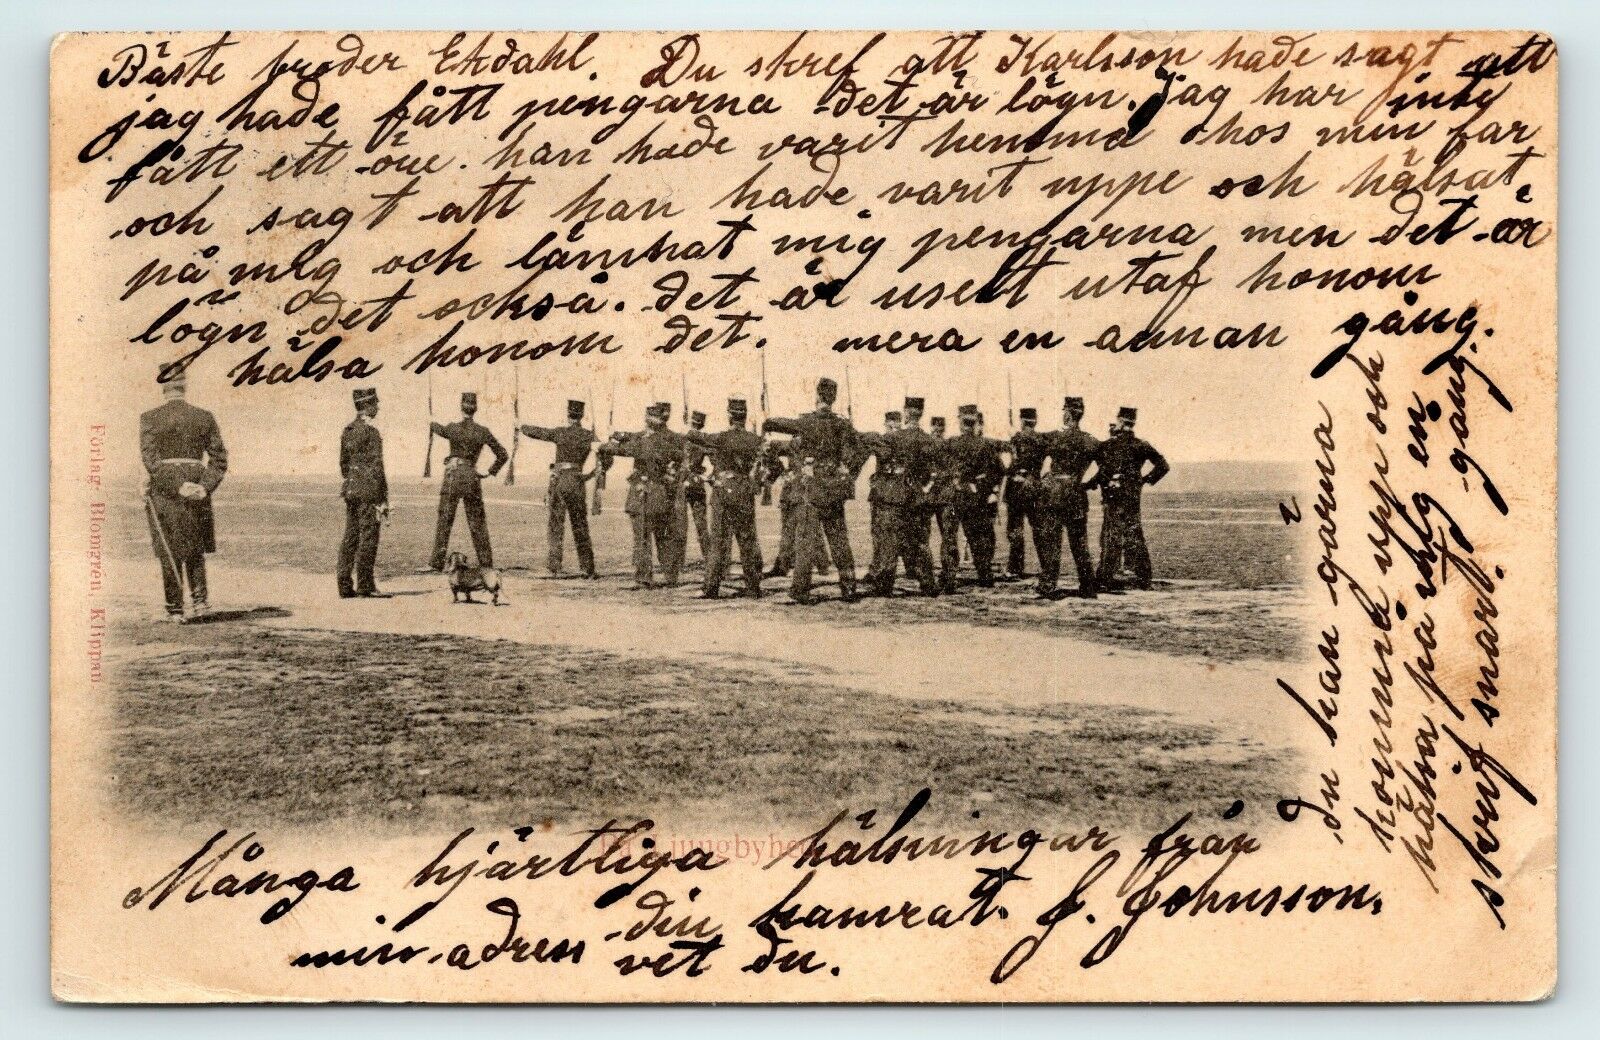 Bäste broder Ekdahl. Du skref att Karlsson hade sagt att
jag hade fått pengarna det är lögn. jag har inte
fått ett öre. han hade varit hemma hos min far
och sagt att han hade varit uppe och hälsat
på mig och lämnat mig pengarna men det är
lögn det också. det är uselt utaf honom
hälsa honom det. mera en annan gång.
du kan gärna
komma upp och
hälsa på mig en
gång.
skrif snart.
Förlag: Blomgrén, Klippan
Ljungbyhed
Många hjärtliga hälsningar från
din kamrat. J. Johnsson.
min adress vet du.